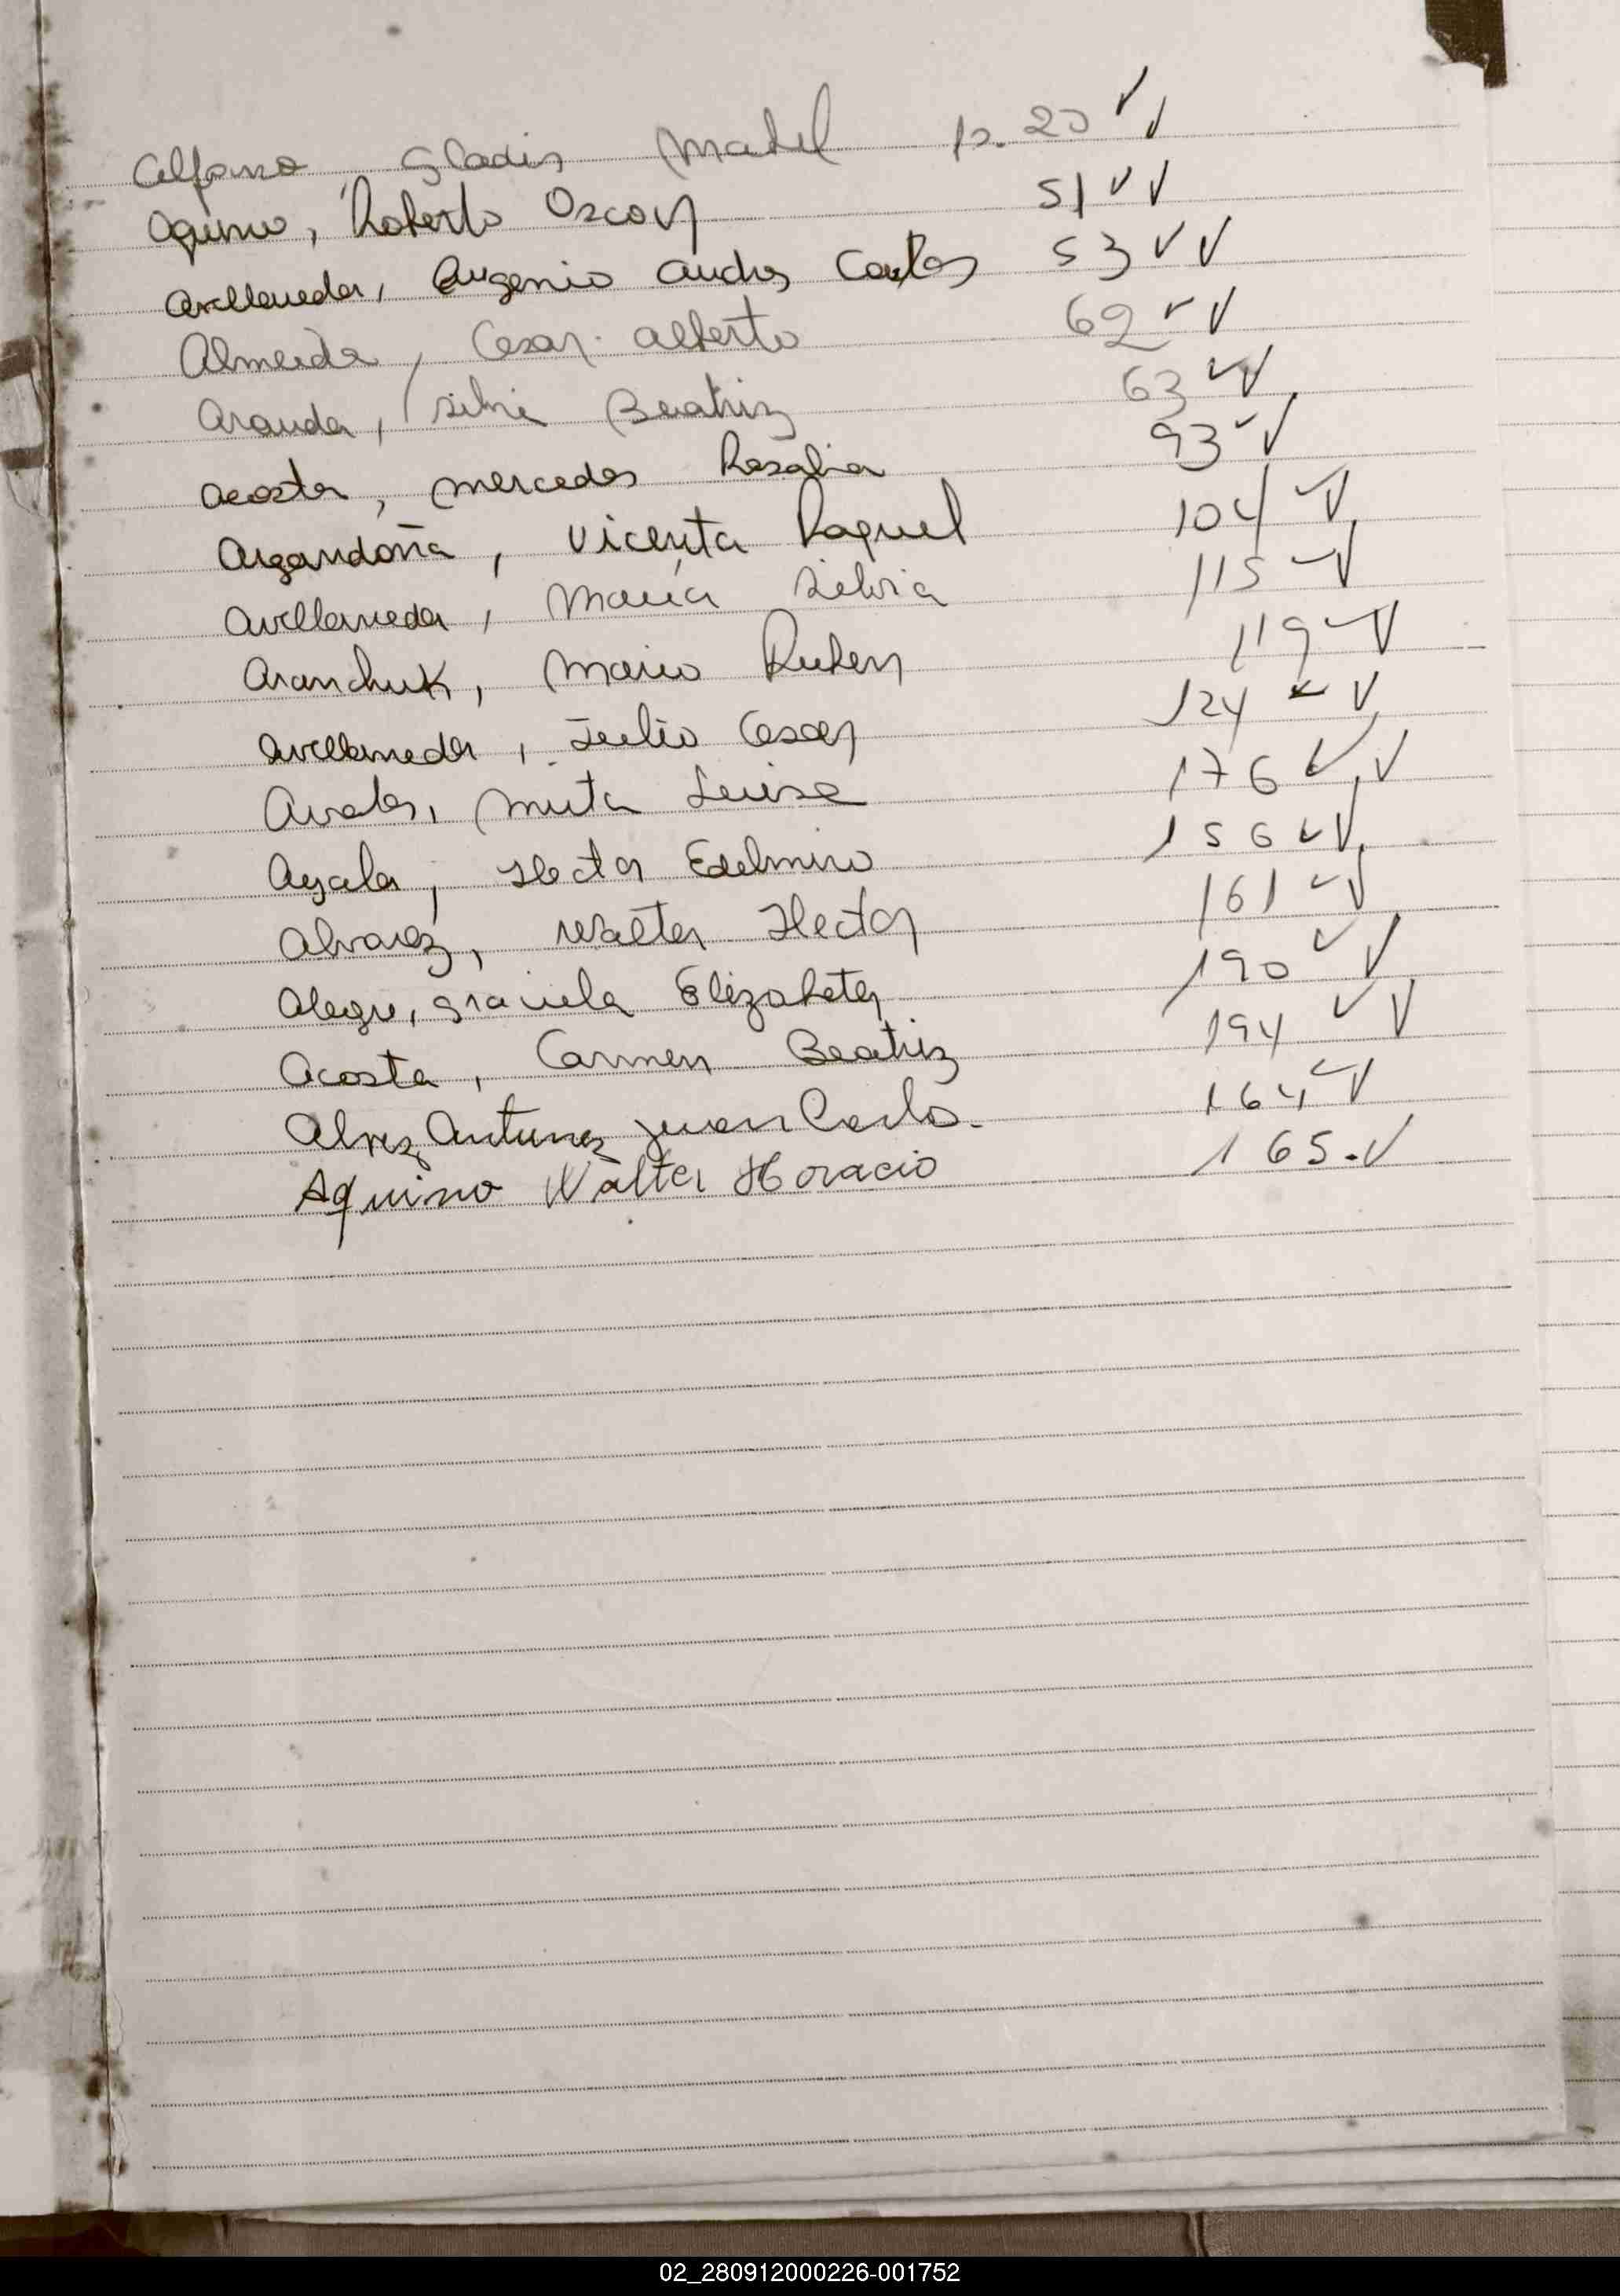 Alfonso Gladis Mabel p. 20 ✓✓
Aquino, Roberto Oscar 51 ✓✓
Avellaneda, Eugenio Andres Carlos 53 ✓✓
Almeida, Cesar Alberto 62 ✓✓
Aranda, Silvia Beatriz 63 ✓✓
Acosta, Mercedes Rosalia 93 ✓✓
Argandoña, Vicenta Raquel 104 ✓✓
Avellaneda, Maria Silvia 115 ✓✓
Aranchuk, Mario Ruben 119 ✓✓
Avellaneda, Julio Cesar 124 ✓✓
Avalos, Mirta Luisa 176 ✓✓
Ayala, Hector Edelmiro 156 ✓✓
Alvarez, Walter Hector 161 ✓✓
Alegre, Graciela Elizabeter 190 ✓✓
Acosta, Carmen Beatriz 194 ✓✓
Alvez Antunez Juan Carlos. 164 ✓✓
Aquino Walter Horacio 165. ✓
02_280912000226-001752